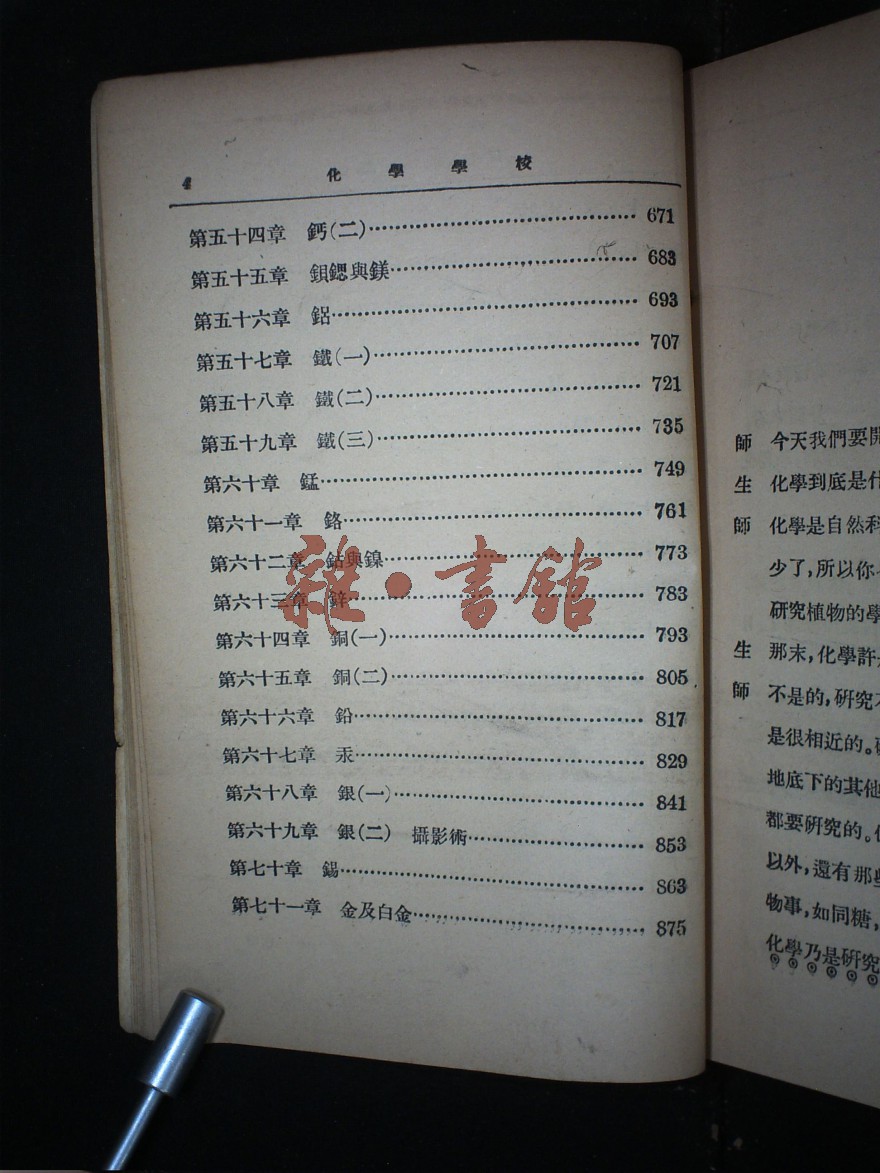 4 化學學校
第五十四章 鈣(二) 671
第五十五章 鋇鍶與鎂 683
第五十六章 鋁 693
第五十七章 鐵(一) 707
第五十八章 鐵(二) 721
第五十九章 鐵(三) 735
第六十章 錳 749
第六十一章 鉻 761
第六十二章 鈷與鎳 773
第六十三章 鋅 783
第六十四章 銅(一) 793
第六十五章 銅(二) 805
第六十六章 鉛 817
第六十七章 汞 829
第六十八章 銀(一) 841
第六十九章 銀(二) 攝影術 853
第七十章 錫 863
第七十一章 金及白金 875
雜·書館
師 今天我們要開
生 化學到底是什
師 化學是自然科
少了,所以你
研究植物的學
生 那末,化學許
師 不是的,研究
是很相近的。
地底下的其他
都要研究的。
以外,還有那些
物事,如同糖,
化學乃是研究